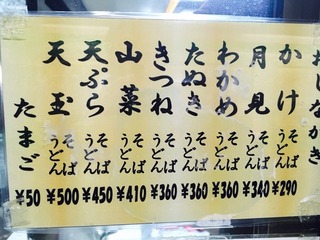 おしながき
かけ そば うどん ¥290
月見 そば うどん ¥340
わかめ そば うどん ¥360
たぬき そば うどん ¥360
きつね そば うどん ¥360
山菜 そば うどん ¥410
天ぷら そば うどん ¥450
天玉 そば うどん ¥500
たまご ¥50